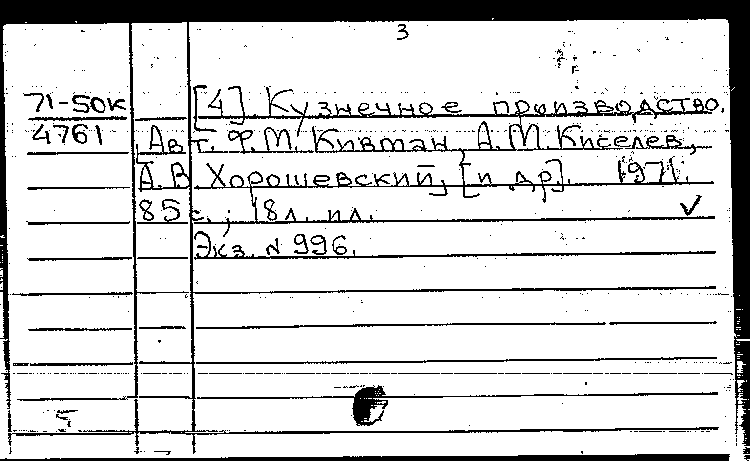 3
71-50к [4]. Кузнечное производство.
4761 Авт. Ф.М. Кивман, А.М. Киселев,
А.В. Хорошевский, [и др]. 1971.
85 с.; 18 л. ил. ✓
Экз. N 996.